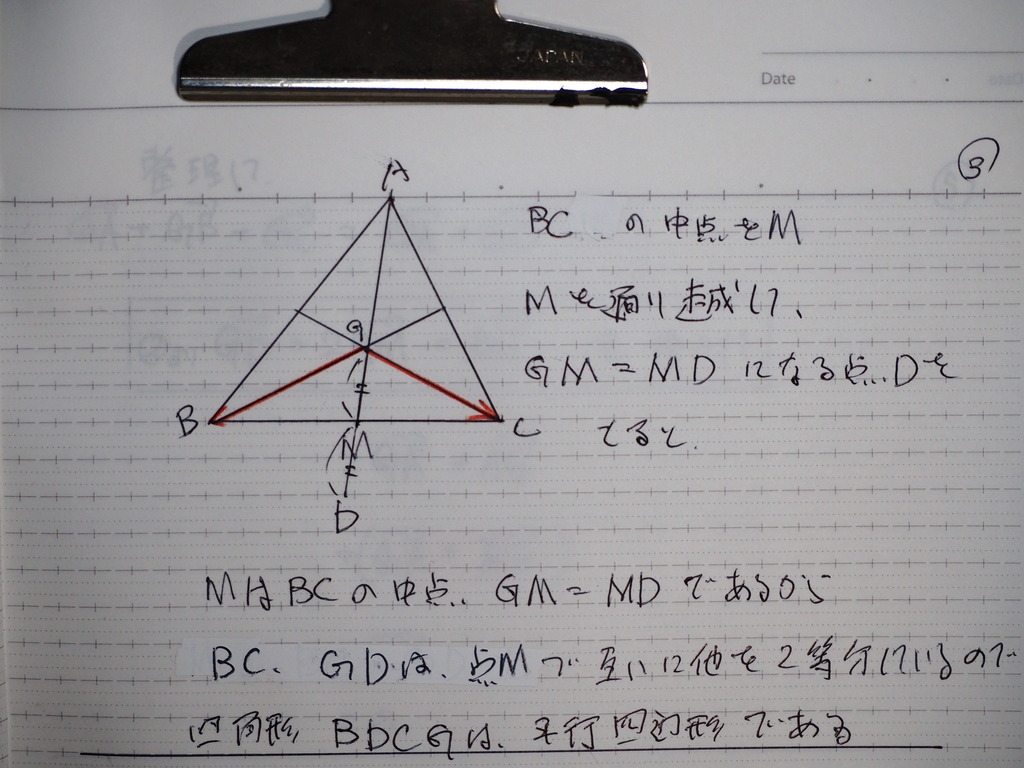 JAPAN
Date
③
A
BC の中点をM
Mを通り越して、
G
GM = MD になる点Dを
B
C
とると、
M
D
MはBCの中点、GM = MD であるから
BC、GDは、点Mで互いに他を2等分しているので
四角形 BDCGは、平行四辺形である